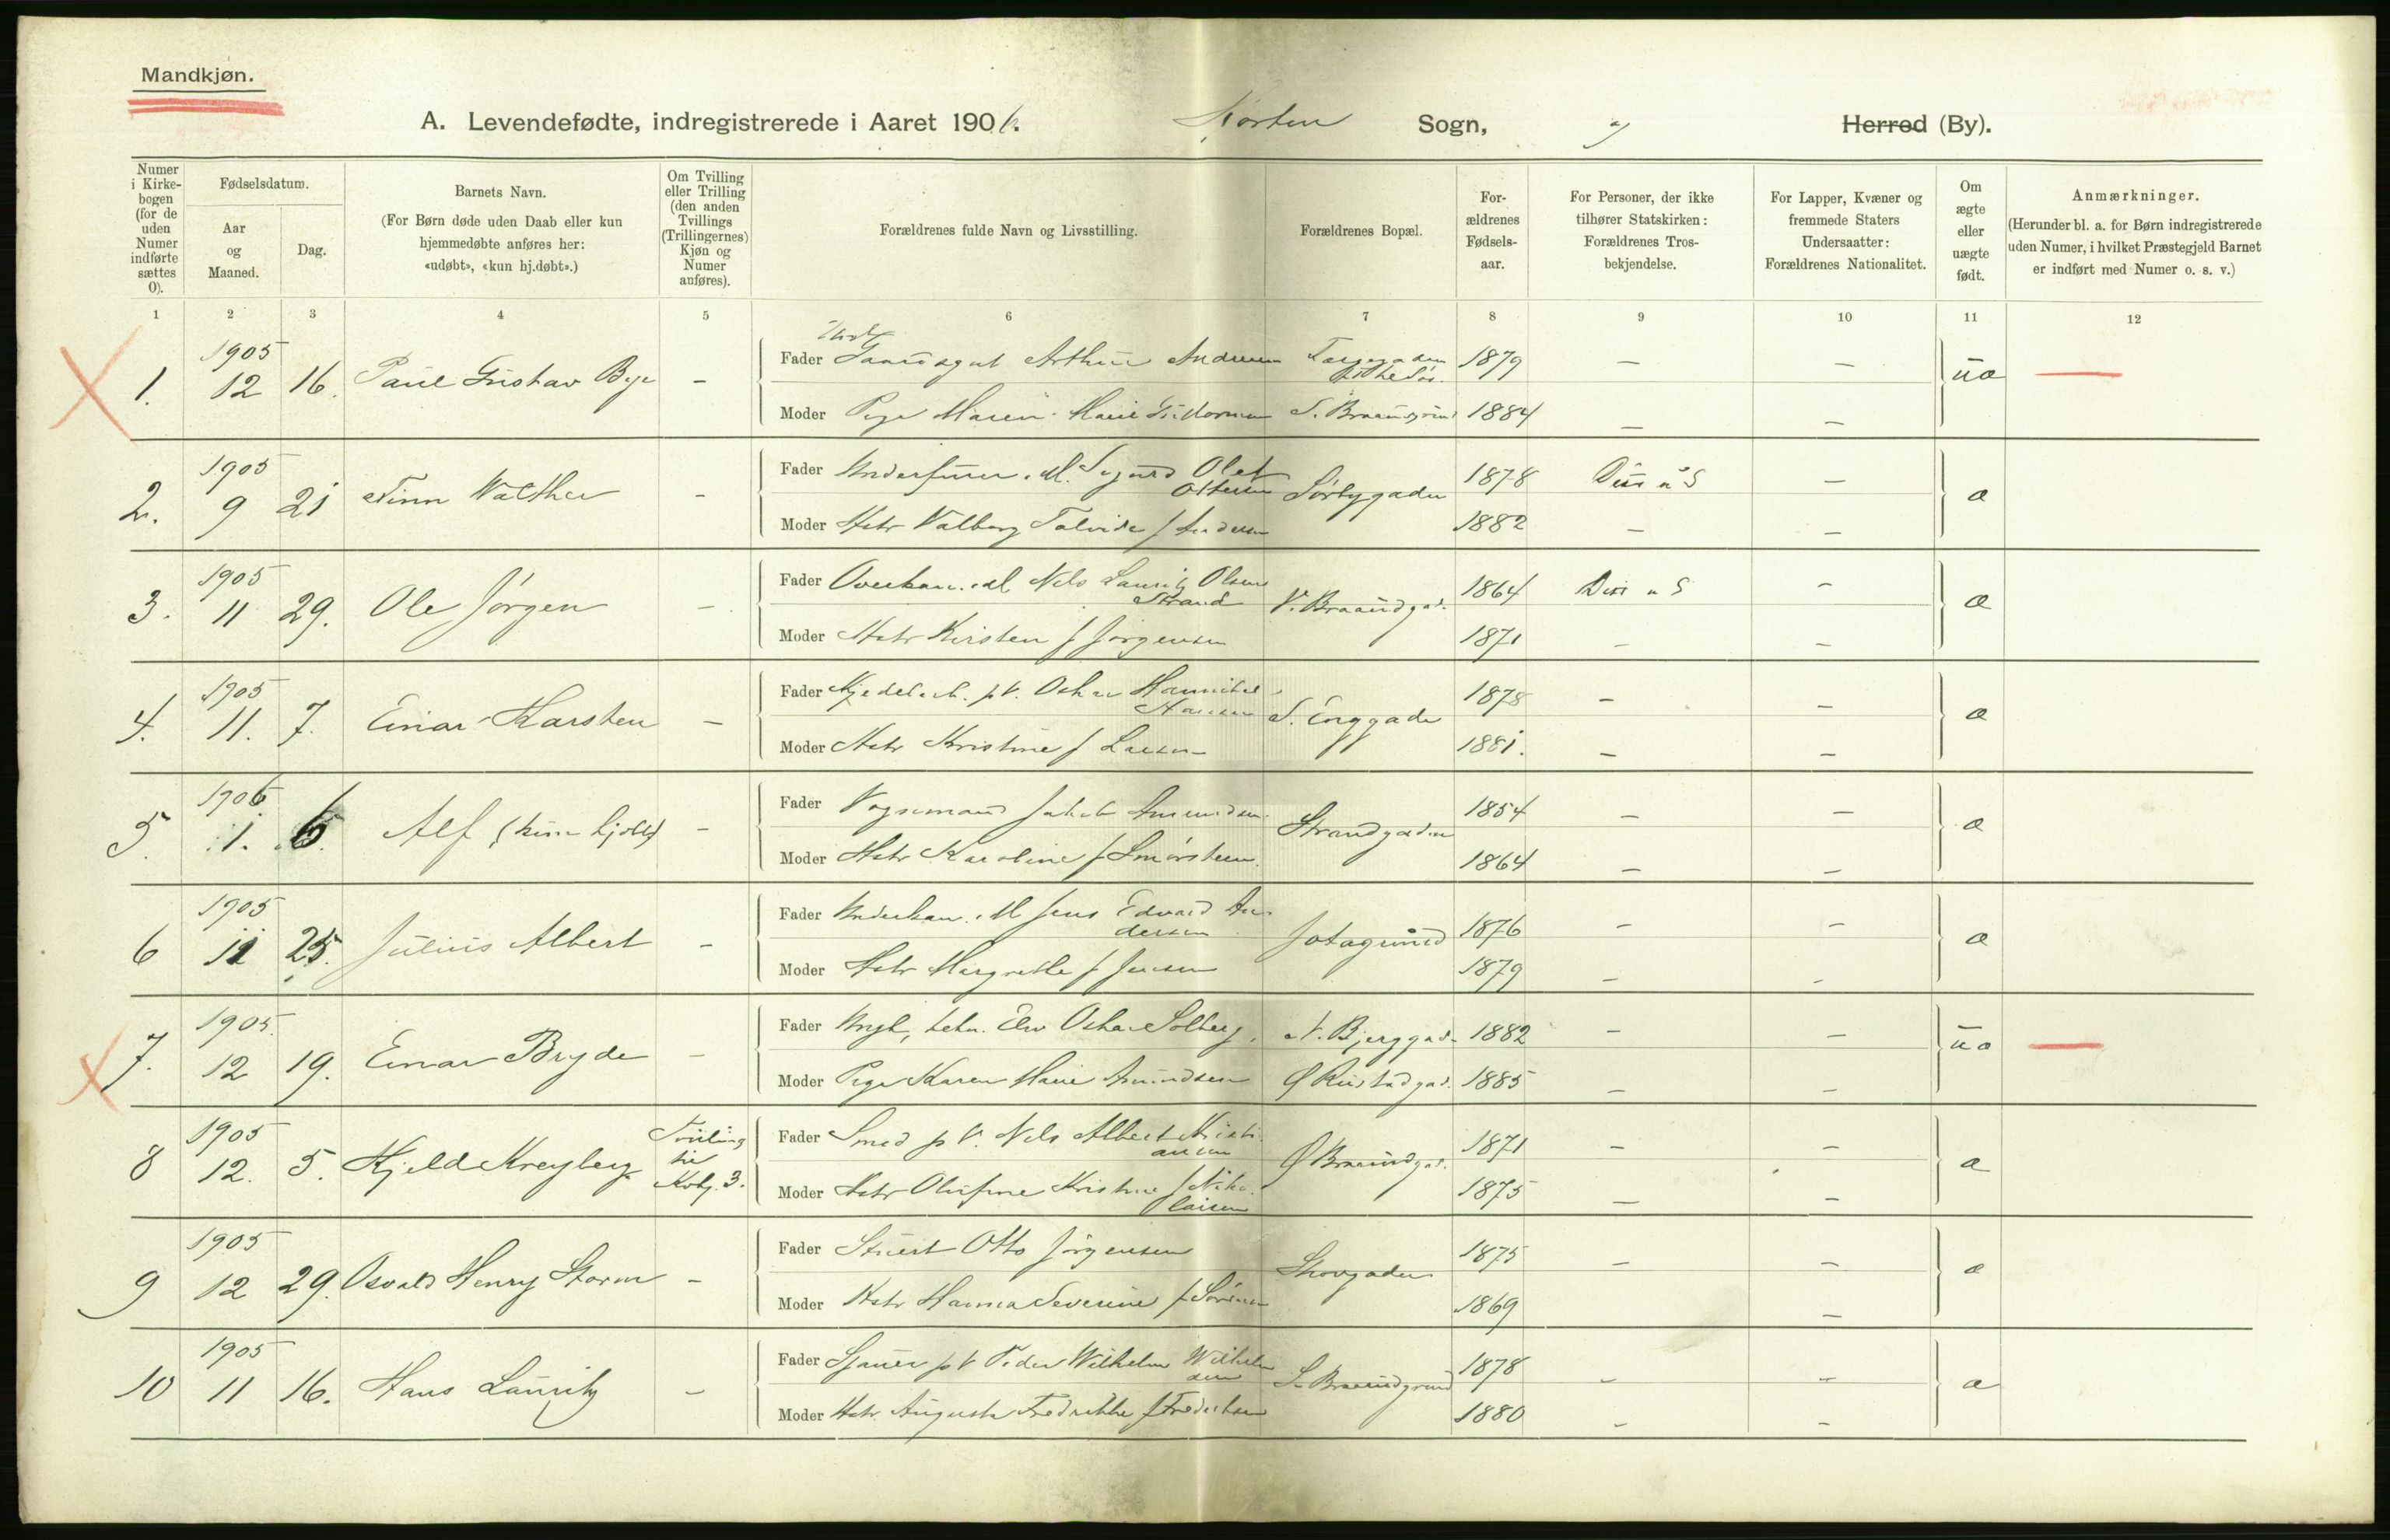 Mandkjøn.
A. Levendefødte, indregistrerede i Aaret 1906. Horten Sogn, " Herred (By).
Numer i Kirke-bogen (for de uden Numer indførte sættes 0).
Fødselsdatum.
Aar og Maaned.
Dag.
Barnets Navn.
(For Børn døde uden Daab eller kun hjemmedøbte anføres her: «udøbt», «kun hj.døbt».)
Om Tvilling eller Trilling (den anden Tvillings (Trillingernes) Kjøn og Numer anføres).
Forældrenes fulde Navn og Livsstilling.
Forældrenes Bopæl.
For-ældrenes Fødsels-aar.
For Personer, der ikke tilhører Statskirken: Forældrenes Tros-bekjendelse.
For Lapper, Kvæner og fremmede Staters Undersaatter: Forældrenes Nationalitet.
Om ægte eller uægte født.
Anmærkninger.
(Herunder bl. a. for Børn indregistrerede uden Numer, i hvilket Præstegjeld Barnet er indført med Numer o. s. v.)
1 2 3 4 5 6 7 8 9 10 11 12
1. 1905 12 16. Paul Gustav Bye –
Fader Arthur Andersen 1879 – –
Moder Pige Maren Marie 1884 – –
uæ —
2. 1905 9 21 Finn Walther –
Fader Sigurd Olaf Ottersen Sørbygaden 1878 Diss –
Moder Hstr Valborg f Andersen 1882 – –
æ
3. 1905 11 29. Ole Jørgen –
Fader Nils Lauritz Olsen Strand V. Braarudgad. 1864 Diss –
Moder Hstr Kirsten f Jørgensen 1871 – –
æ
4. 1905 11. 7. Einar Karsten –
Fader Kjedelarb. p V. Oskar Hannibal Hansen S. Enggade 1878 – –
Moder Hstr Kristine f Larsen 1881. – –
æ
5. 1906 1. 6. Alf (kun hjdbt) –
Fader Vognmand Jakob Amundsen Strandgaden 1854 – –
Moder Hstr Karoline f 1864 – –
æ
6 1905 11 25. Julius Albert –
Fader Jens Edvard Andersen 1876 – –
Moder Hstr Margrethe f Jensen 1879 – –
æ
7. 1905. 12 19. Einar Bryde –
Fader Oskar Solberg. N. Bjerggad. 1882 – –
Moder Pige Karen Marie Amundsen Ø Rustadgad. 1885 – –
uæ —
8 1905 12. 5. Kjeld Kreyberg Tvilling til Kvkj. 3.
Fader Smed p V. Nils Albert Kristiansen Ø Braarudgad. 1871 – –
Moder Hstr Olufine Kristine f Nikolaisen 1875 – –
æ
9 1905 12 29. Osvald Henry Storm –
Fader Stuert Otto Jørgensen Skovgaden 1875 – –
Moder Hstr Hanna Severine f Sørensen 1869 –
æ
10 1905 11 16. Hans Lauritz –
Fader Sjauer p V Peder Wilhelm Wilhelmsen S. Braarudgrund 1878 – –
Moder Hstr. Augusta Fredrikke f Fredriksen 1880 – –
æ